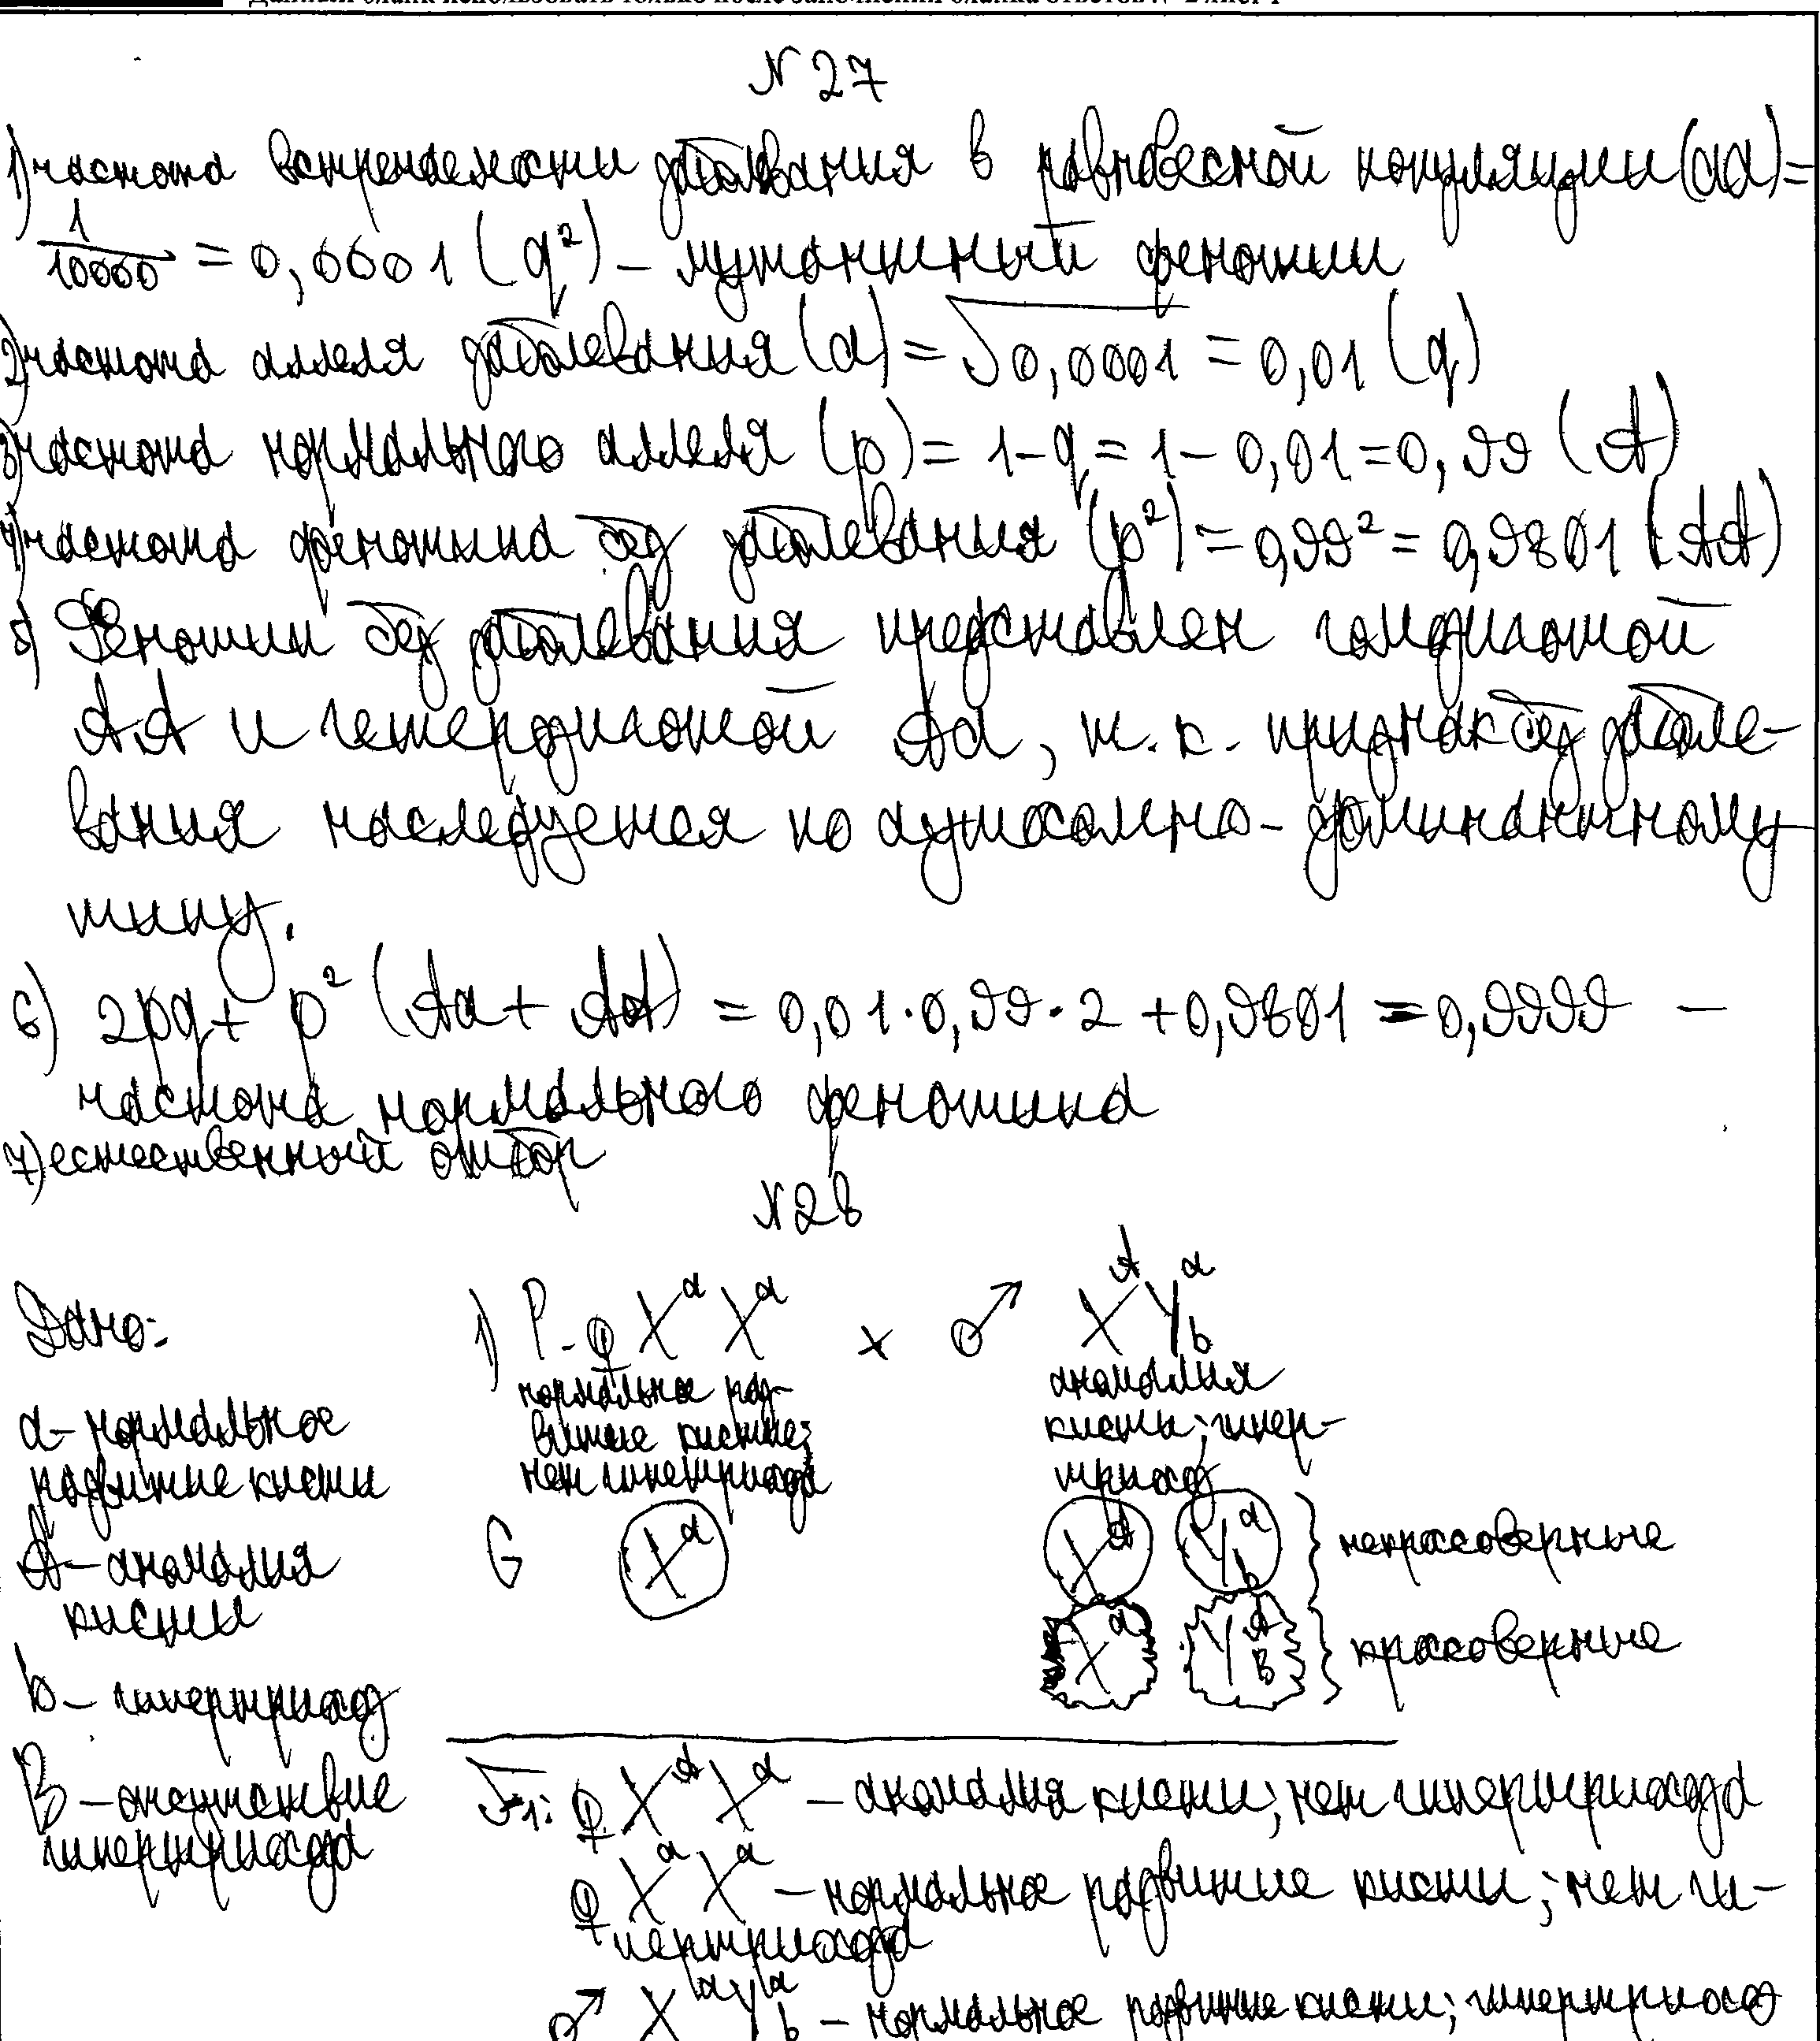 Данный бланк использовать только после заполнения бланка ответов № 2 лист 1
N 27
1) частота встречаемости заболевания в равновесной популяции (aa) =
1/10000 = 0,0001 (q²) – мутантный фенотип
2) частота аллеля заболевания (a) = √0,0001 = 0,01 (q)
3) частота нормального аллеля (p) = 1-q = 1 – 0,01 = 0,99 (A)
4) частота фенотипа без заболевания (p²) = 0,99² = 0,9801 (AA)
5) Фенотип без заболевания представлен гомозиготой
AA и гетерозиготой Aa, т.к. признак без заболе-
вания наследуется по аутосомно-доминантному
типу.
6) 2pq + p² (Aa + AA) = 0,01·0,99·2 + 0,9801 = 0,9999 –
частота нормального фенотипа
7) естественный отбор
N28
Дано:
a – нормальное
развитие кисти
A – аномалия
кисти
b – гипертрихоз
B – отсутствие
гипертрихоза
1) P - ♀ XᵃXᵃ x ♂ XᴬYᵃb
нормальное раз-
витие кисти;
нет гипетрихоза
аномалия
кисти; гипер-
трихоз
G Xᵃ Xᴬ Yᵃb } некроссоверные
Xᵃ YᴬB } кроссоверные
F₁: ♀ XᴬXᵃ – аномалия кисти; нет гипертрихоза
♀ XᵃXᵃ – нормальное развитие кисти; нет ги-
пертрихоза
♂ XᵃYᵃb – нормальное развитие кисти; гипертрихоз